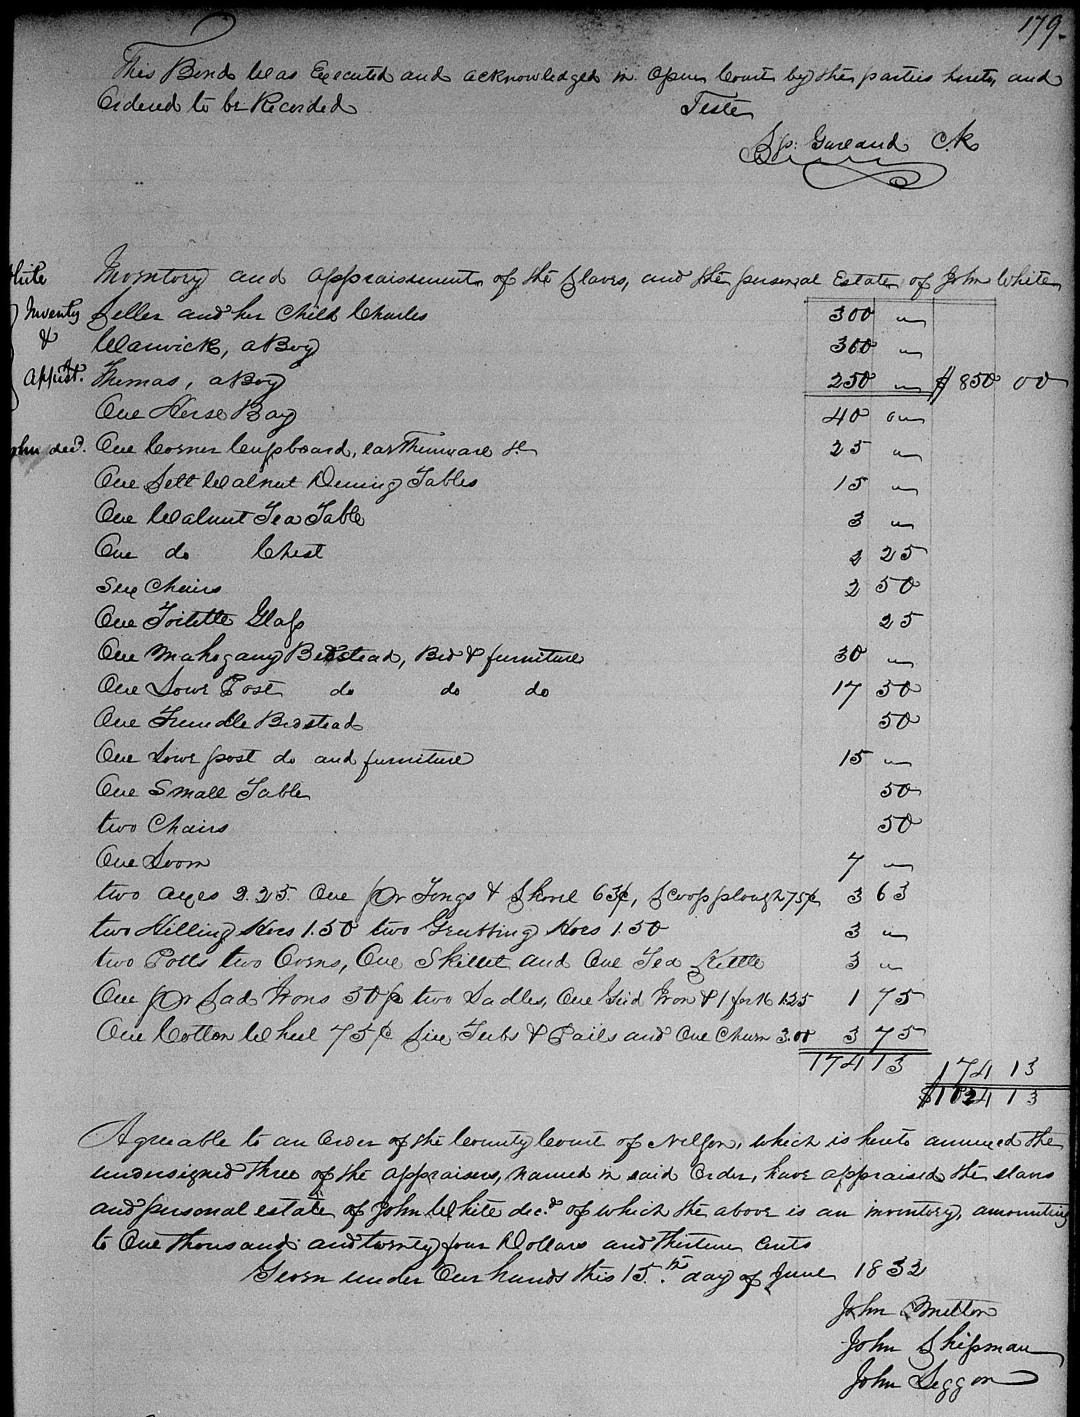 179.
This Bond Was Executed and acknowledged in Open Court by the parties hereto, and
Ordered to be Recorded Teste
Sp: Garland Ck
White
Inventy
&
Appmt.
John decd.
Inventory and appraisement of the Slaves, and the personal Estate of John White
Seller and her Child Charles 300 "
Warwick, a Boy 300 "
Thomas, a Boy 250 " $ 850 00
One Horse Bay 40 00
One Corner Cupboard, earthenware &c 25 "
One Sett Walnut Dining Tables 15 "
One Walnut Tea Table 3 "
One do Chest 2 25
Six Chairs 2 50
One Toilette Glass 25
One Mahogany Bedstead, Bed & furniture 30 "
One Low Post do do do 17 50
One Trundle Bedstead 50
One Low post do and furniture 15 "
One Small Table 50
two Chairs 50
One Loom 7 "
two axes 2.25. One pr Tongs & Shovel 63¢, Scoop plough 75¢ 3 63
two Hilling Hoes 1.50 two Grubbing Hoes 1.50 3 "
two Potts two Ovens, One Skillet and One Tea Kettle 3 "
One pr Sad Irons 50¢ two Ladles, One Grid Iron & 1 fork 1.25 1 75
One Cotton Wheel 75¢ Six Tubs & Pails and One Churn 3.00 3 75
174 13 174 13
$1024 13
Agreeable to an Order of the County Court of Nelson, which is hereto annexed the
undersigned three of the appraisers, named in said Order, have appraised the slaves
and personal estate of John White decd. of which the above is an inventory, amounting
to One thousand and twenty four Dollars and thirteen Cents
Given under Our hands this 15.th day of June 1832
John Melton
John Shipman
John Seggon